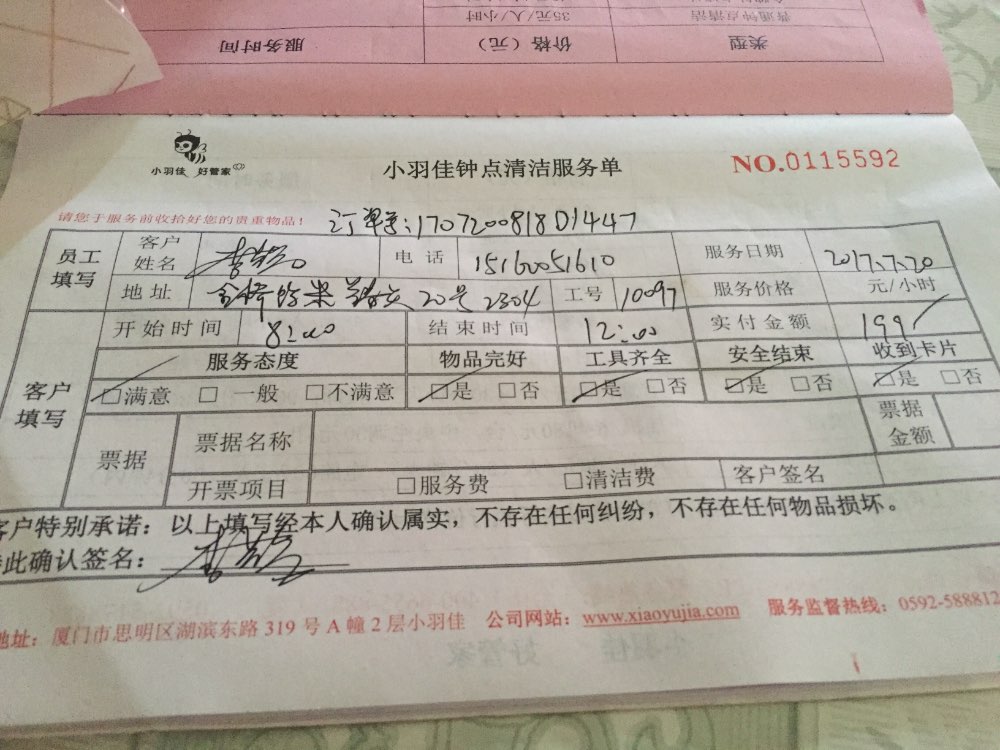 类型 价格（元） 服务时间
普通钟点清洁 35元/人/小时
小羽佳 好管家
小羽佳钟点清洁服务单
NO.0115592
请您于服务前收拾好您的贵重物品！
订单号:1707200818D1447
员工填写 客户姓名 电话 15160051610 服务日期 2017.7.20
地址 20号2304 工号 10097 服务价格 元/小时
客户填写 开始时间 8:00 结束时间 12:00 实付金额 199
服务态度 物品完好 工具齐全 安全结束 收到卡片
□满意 □一般 □不满意 □是 □否 □是 □否 □是 □否 □是 □否
票据 票据名称 票据金额
开票项目 □服务费 □清洁费 客户签名
客户特别承诺：以上填写经本人确认属实，不存在任何纠纷，不存在任何物品损坏。
此确认签名：
地址：厦门市思明区湖滨东路319号A幢2层小羽佳 公司网站：www.xiaoyujia.com 服务监督热线：0592-588812